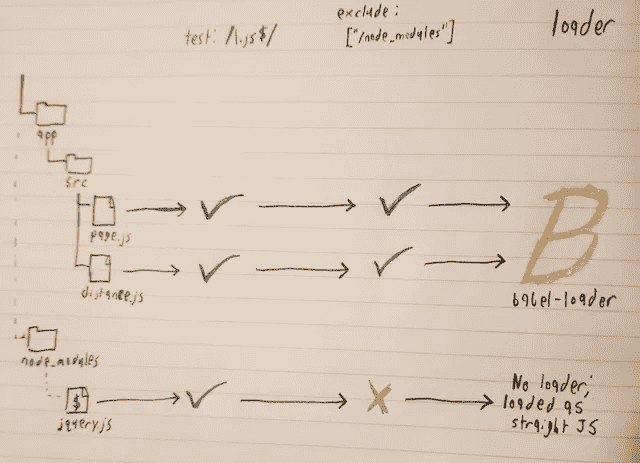 test: /\.js$/
exclude:
["/node_modules"]
loader
app
src
page.js
distance.js
B
babel-loader
node_modules
$
jquery.js
No loader;
loaded as
straight JS